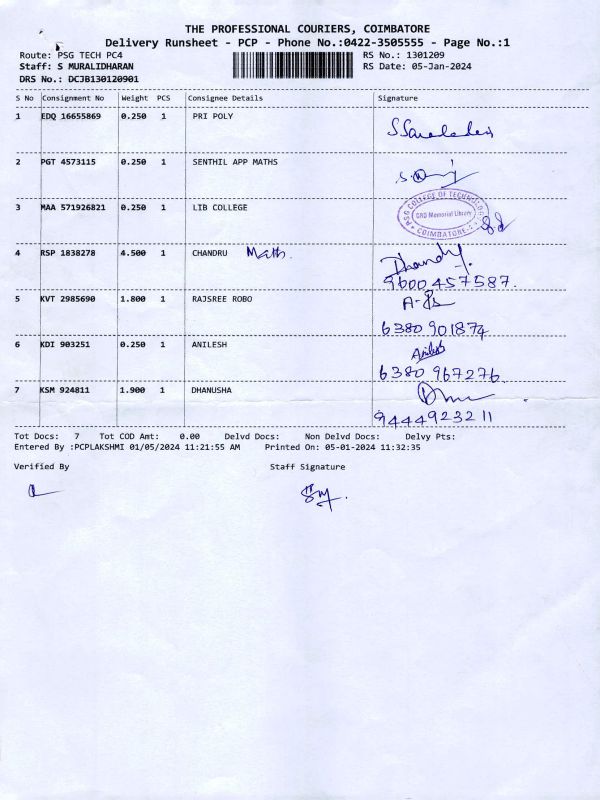 THE PROFESSIONAL COURIERS, COIMBATORE
Delivery Runsheet - PCP - Phone No.:0422-3505555 - Page No.:1
Route: PSG TECH PC4 RS No.: 1301209
Staff: S MURALIDHARAN RS Date: 05-Jan-2024
DRS No.: DCJB130120901
S No Consignment No Weight PCS Consignee Details Signature
1 EDQ 16655869 0.250 1 PRI POLY
2 PGT 4573115 0.250 1 SENTHIL APP MATHS
3 MAA 571926821 0.250 1 LIB COLLEGE
PSG COLLEGE OF TECHNOLOGY
GRD Memorial Library
COIMBATORE
4 RSP 1838278 4.500 1 CHANDRU Maths.
9600457587.
5 KVT 2985690 1.800 1 RAJSREE ROBO
6380 901874
6 KDI 903251 0.250 1 ANILESH Anilesh
6380 967276
7 KSM 924811 1.900 1 DHANUSHA
9444923211
Tot Docs: 7 Tot COD Amt: 0.00 Delvd Docs: Non Delvd Docs: Delvy Pts:
Entered By :PCPLAKSHMI 01/05/2024 11:21:55 AM Printed On: 05-01-2024 11:32:35
Verified By Staff Signature